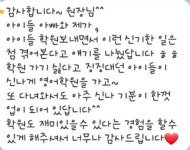 감사합니다~ 원장님^^
아이들 아빠와 제가,
아이들 학원보내면서 이런 신기한 일은
첨 겪어본다고 얘기를 나눴답니다 ㅎㅎ
학원 가기 싫다고 징징대던 아이들이
신나게 영어학원을 가고~
또 다녀와서도 아주 신나 기분이 한껏
업이 되어 있답니다^^
학원도 재미있을수 있다는 경험을 할수
있게 해주셔서 너무나 감사드립니다❤️